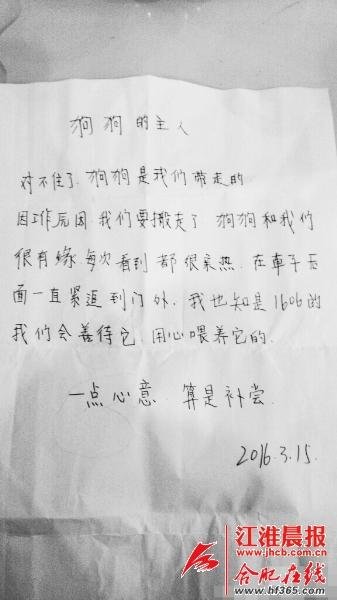 狗狗的主人
对不住了.狗狗是我们带走的
因工作原因.我们要搬走了 狗狗和我们
很有缘.每次看到都很亲热.在車子后
面一直紧追到门外.我也知是1606的
我们会善待它.用心喂养它的.
一点心意.算是补尝.
2016.3.15.
江淮晨报
www.jhcb.com.cn
合肥在线
www.hf365.com